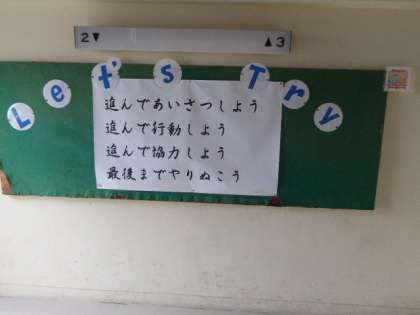 2▼ ▲3
Let's Try
進んであいさつしよう
進んで行動しよう
進んで協力しよう
最後までやりぬこう